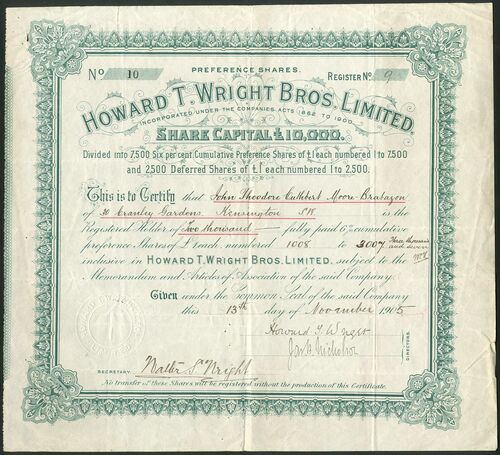 PREFERENCE SHARES.
No 10
REGISTER No. 9
HOWARD T. WRIGHT BROS. LIMITED.
INCORPORATED UNDER THE COMPANIES ACTS 1862 TO 1900.
SHARE CAPITAL £10,000.
Divided into 7,500 Six per cent. Cumulative Preference Shares of £1 each numbered 1 to 7,500
and 2,500 Deferred Shares of £1 each numbered 1 to 2,500.
This is to Certify that John Theodore Cuthbert Moore-Brabazon
of 30 Cranley Gardens, Kensington SW is the
Registered Holder of Two thousand fully paid 6% cumulative
preference Shares of £1 each numbered 1008 to 3007 Three thousand and seven
inclusive in HOWARD T. WRIGHT BROS. LIMITED. subject to the
Memorandum and Articles of Association of the said Company.
Given under the Common Seal of the said Company
this 13th day of November 1905
Howard T Wright
DIRECTORS.
SECRETARY. Walter S. Wright
No transfer of these Shares will be registered without the production of this Certificate.